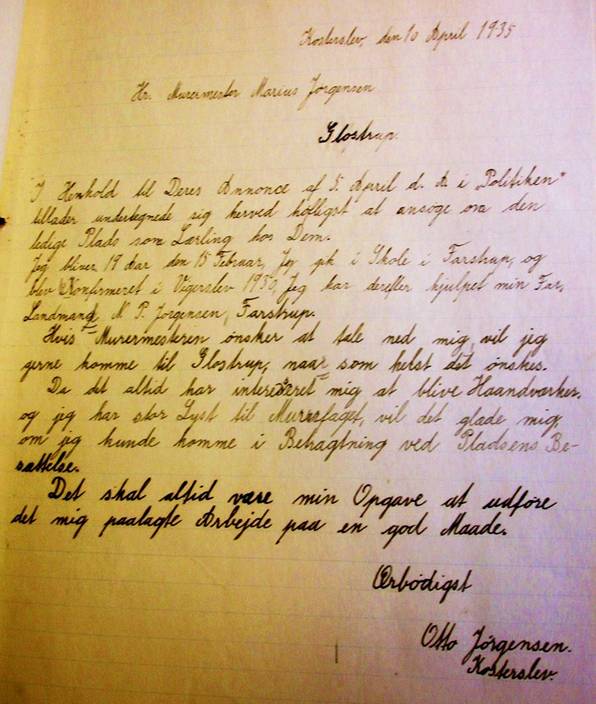 Kosterslev, den 10 April 1935
Hr. Murermester Marius Jørgensen
Glostrup.
I Henhold til Deres Annonce af 5. April d. A i „Politiken"
tillader undertegnede sig herved høfligst at ansøge om den
ledige Plads som Lærling hos Dem.
Jeg bliver 19 Aar den 15 Februar, Jeg gik i Skole i Farstrup, og
blev Konfirmeret i Vigerslev 1930, Jeg har derefter hjulpet min Far,
Landmand N P. Jørgensen, Farstrup.
Hvis Murermesteren ønsker at tale ned mig, vil jeg
gerne komme til Glostrup, naar som helst det ønskes.
Da det altid har interesseret mig at blive Haandværker,
og jeg har stor Lyst til Murerfaget, vil det glæde mig,
om jeg kunde komme i Betragtning ved Pladsens Be-
sættelse.
Det skal altid være min Opgave at udføre
det mig paalagte Arbejde paa en god Maade.
Ærbødigst
Otto Jørgensen.
Kosterslev.